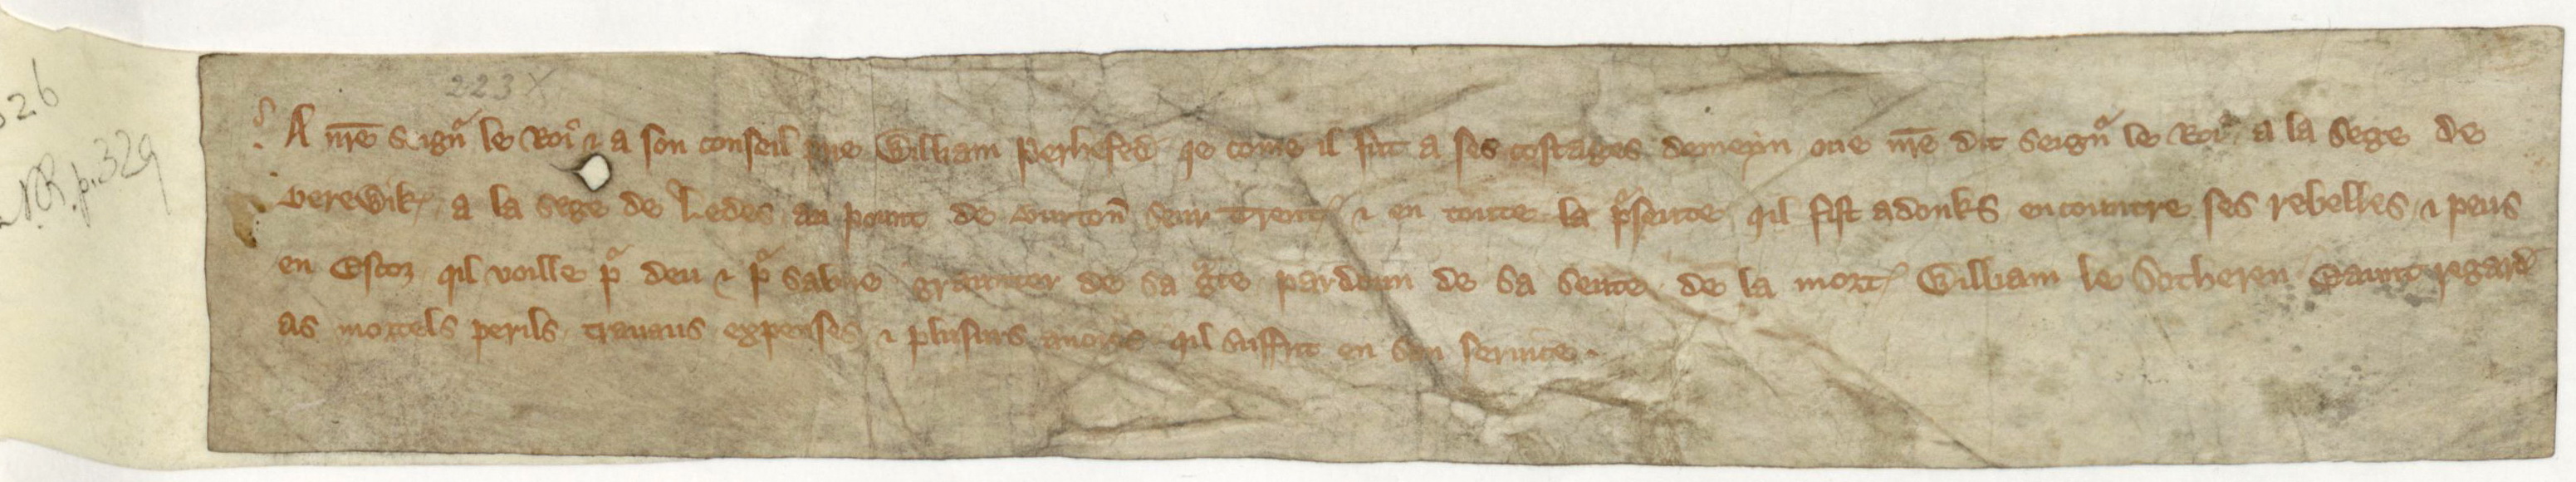 223X
326
NR. p. 329
A nr̄e seignr̃ le Roi & a son conseil prie William Perhefed qe come il fut a ses costages demeyn oue nr̄e dit seignr̃ le Roi a la sege de
Berewik, a la sege de Ledes au pount de Burton̄ seur Trent & en toute la p̃sente qil fist adonks encountre ses rebelles & peus
en Escoz qil voille pr̃ deu & pr̃ salme graunter de sa gr̃ce pardoun de sa seute de la mort William le Sotheren Eaunt regard
as mortels perils trauaus expenses & plusurs anoies qil suffrit en son seruice.